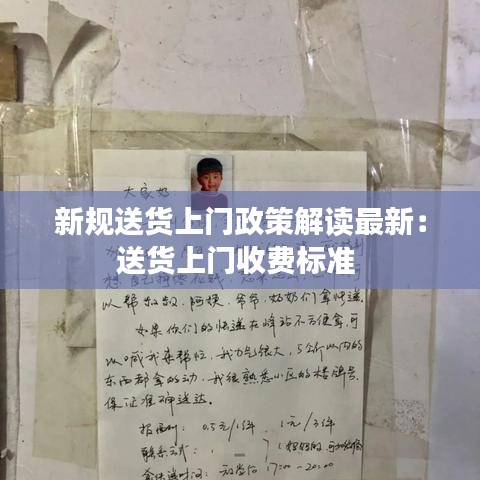 大家好
新规送货上门政策解读最新：
送货上门收费标准
以帮叔叔、阿姨、爷爷、奶奶们拿快递。
如果你们的快递在峰站不方便拿，可
以喊我来帮忙，我力气很大，5公斤以内的
东西都拿的动，我很熟悉小区的楼牌号，
保证准确送达。
报酬：0.5元/1件，1元/3件
联系方式：
拿快递时间：放学后17:00-20:00